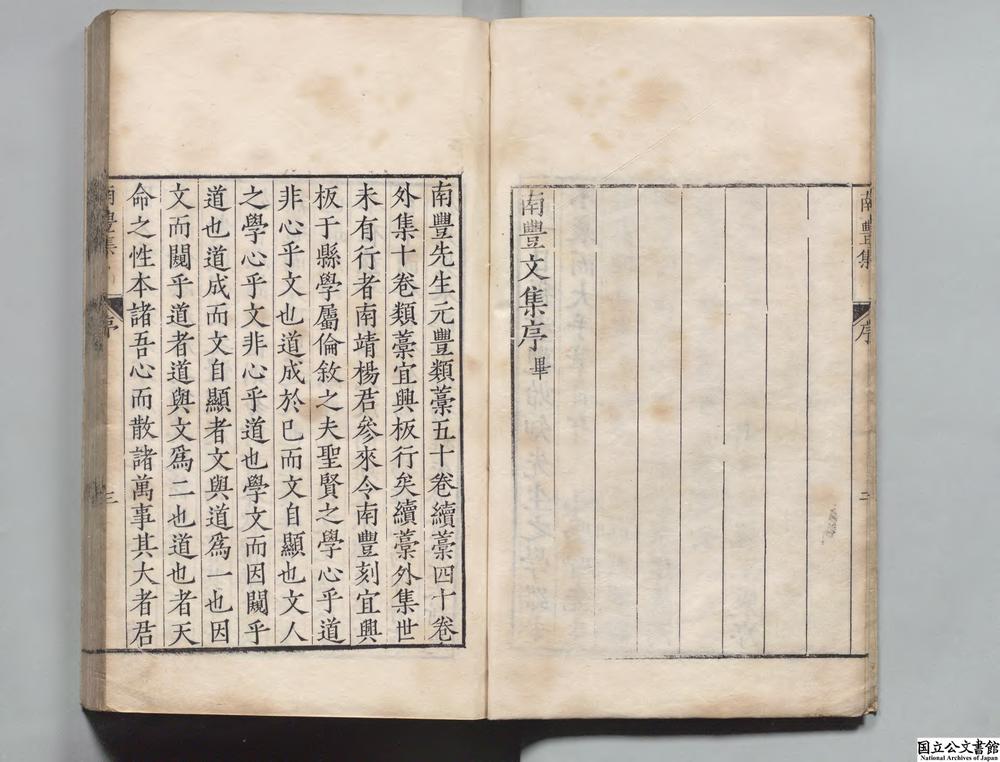 南豐集
序
二
南豐文集序畢
南豐先生元豐類藁五十卷續藁四十卷
外集十卷類藁宜興板行矣續藁外集世
未有行者南靖楊君參來令南豐刻宜興
板于縣學屬倫敘之夫聖賢之學心乎道
非心乎文也道成於已而文自顯也文人
之學心乎文非心乎道也學文而因闚乎
道也道成而文自顯者文與道爲一也因
文而闚乎道者道與文爲二也道也者天
命之性本諸吾心而散諸萬事其大者君
南豐集
序
三
国立公文書館
National Archives of Japan